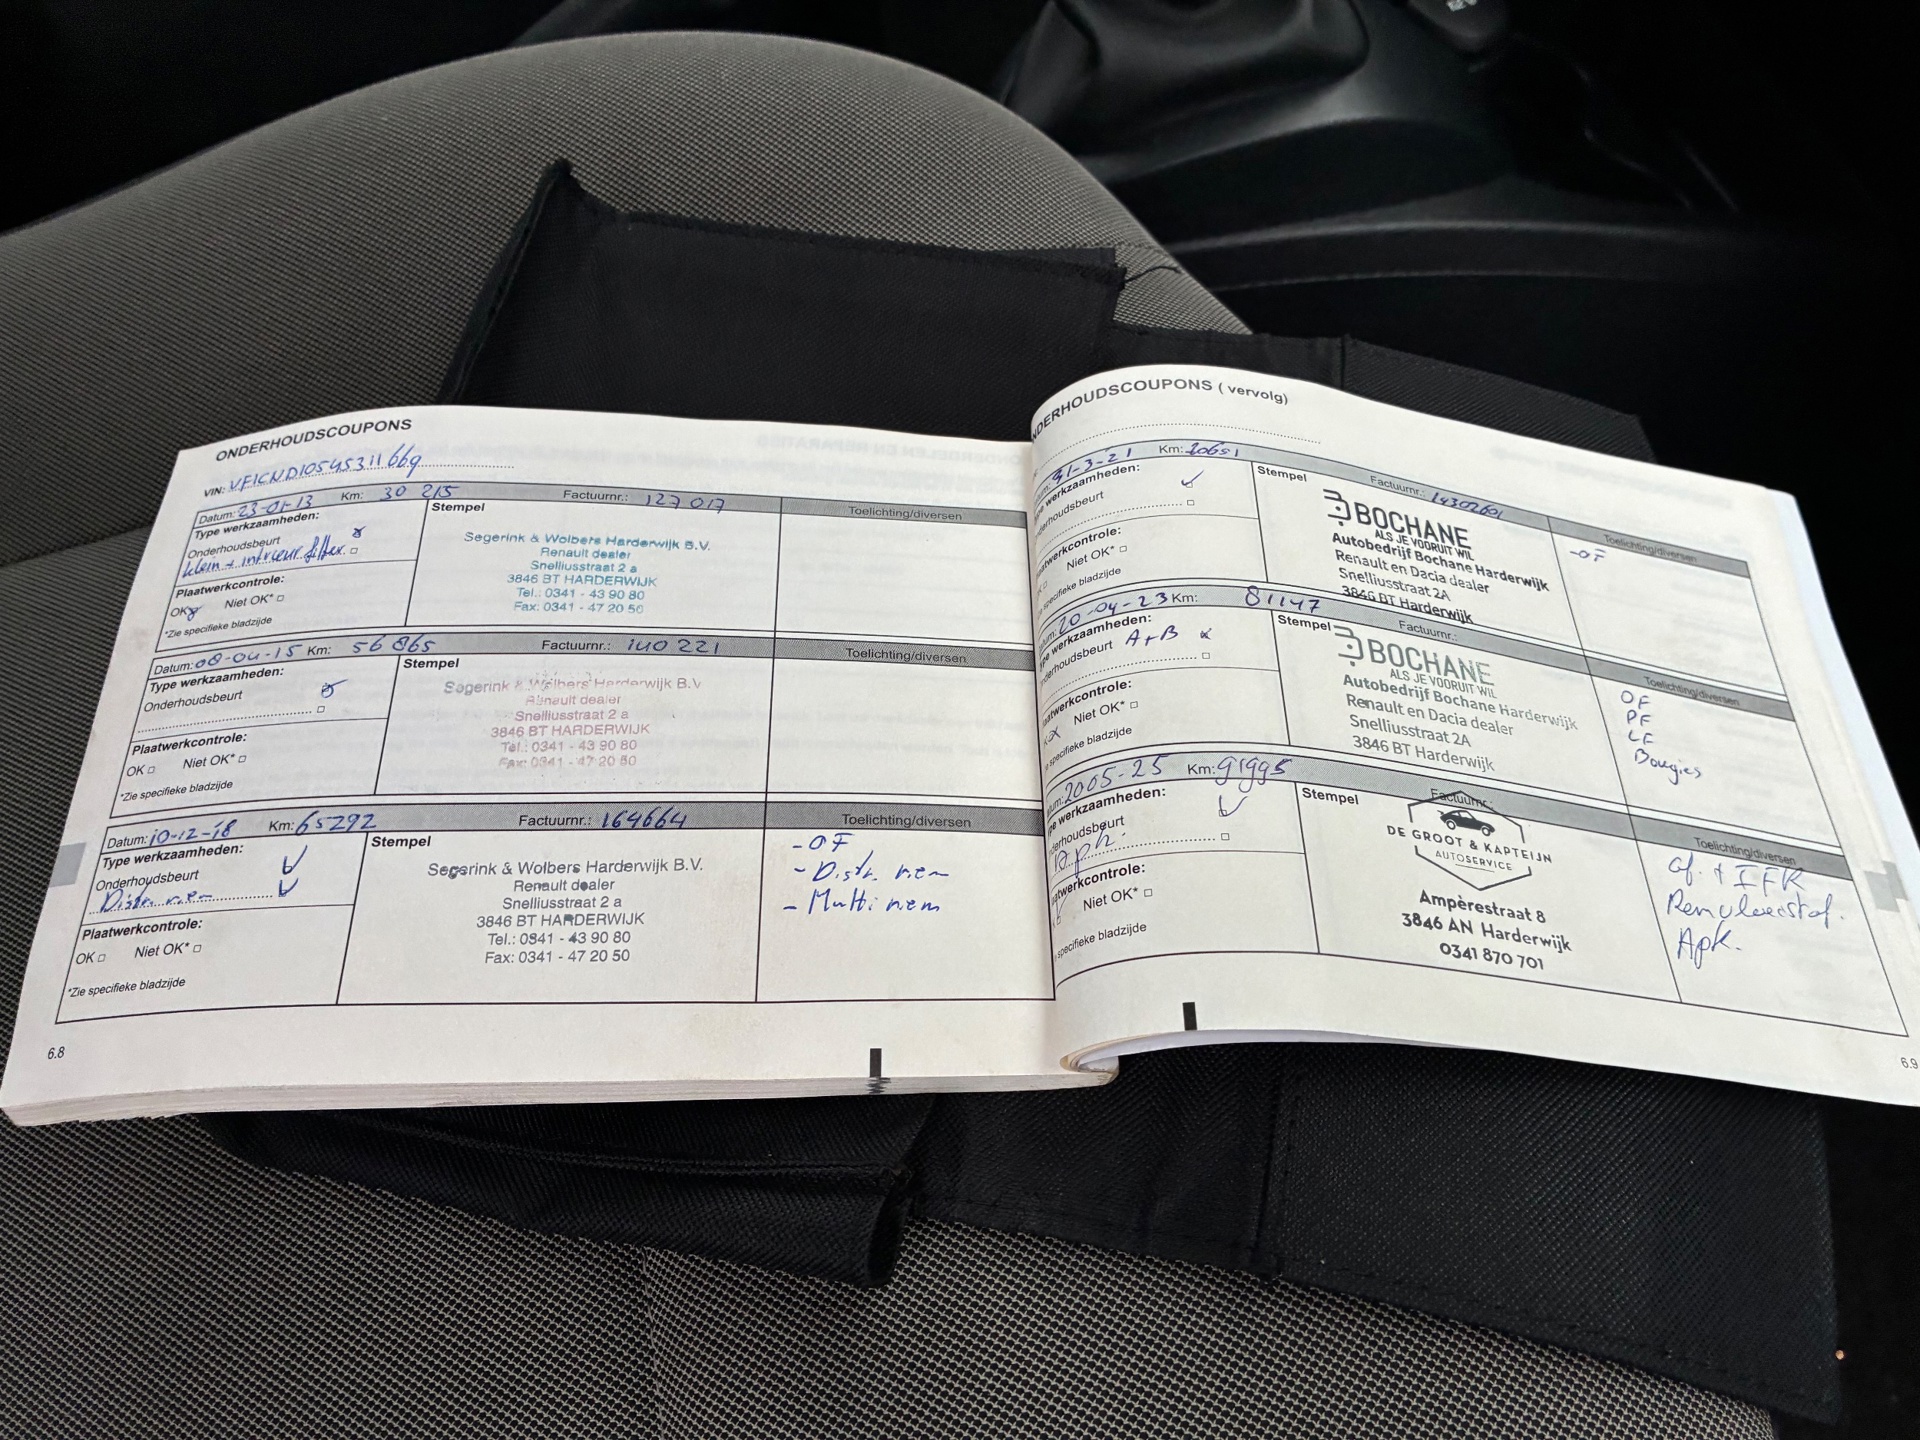 ONDERHOUDSCOUPONS
VIN:
Datum: 23-01-13 Km: 30 215 Factuurnr.: 127017 Toelichting/diversen
Type werkzaamheden:
Onderhoudsbeurt
klein + intrieur filter
Plaatwerkcontrole:
OK Niet OK*
*Zie specifieke bladzijde
Stempel
Segerink & Wolbers Harderwijk B.V.
Renault dealer
Snelliusstraat 2 a
3846 BT HARDERWIJK
Tel.: 0341 - 43 90 80
Fax: 0341 - 47 20 50
Datum: 08-04-15 Km: 56865 Factuurnr.: 140221 Toelichting/diversen
Type werkzaamheden:
Onderhoudsbeurt
Plaatwerkcontrole:
OK Niet OK*
*Zie specifieke bladzijde
Stempel
Segerink & Wolbers Harderwijk B.V.
Renault dealer
Snelliusstraat 2 a
3846 BT HARDERWIJK
Tel.: 0341 - 43 90 80
Fax: 0341 - 47 20 50
Datum: 10-12-18 Km: 65292 Factuurnr.: 164664 Toelichting/diversen
Type werkzaamheden:
Onderhoudsbeurt
Distr. riem
Plaatwerkcontrole:
OK Niet OK*
*Zie specifieke bladzijde
Stempel
Segerink & Wolbers Harderwijk B.V.
Renault dealer
Snelliusstraat 2 a
3846 BT HARDERWIJK
Tel.: 0341 - 43 90 80
Fax: 0341 - 47 20 50
- OF
- Distr. riem
- Multi riem
6.8
NDERHOUDSCOUPONS ( vervolg)
31-3-21 Km: Factuurnr.: Toelichting/diversen
ype werkzaamheden:
nderhoudsbeurt
aatwerkcontrole:
Niet OK*
e specifieke bladzijde
Stempel
BOCHANE
ALS JE VOORUIT WIL
Autobedrijf Bochane Harderwijk
Renault en Dacia dealer
Snelliusstraat 2A
3846 BT Harderwijk
-OF
tum: 20-04-23 Km: 81147 Factuurnr.: Toelichting/diversen
ype werkzaamheden:
nderhoudsbeurt A+B
laatwerkcontrole:
Niet OK*
e specifieke bladzijde
Stempel
BOCHANE
ALS JE VOORUIT WIL
Autobedrijf Bochane Harderwijk
Renault en Dacia dealer
Snelliusstraat 2A
3846 BT Harderwijk
OF
PF
LF
Bougies
tum: 2005-25 Km: 91995 Factuurnr.: Toelichting/diversen
ype werkzaamheden:
nderhoudsbeurt
Apk
aatwerkcontrole:
Niet OK*
e specifieke bladzijde
Stempel
DE GROOT & KAPTEIJN
AUTOSERVICE
Ampèrestraat 8
3846 AN Harderwijk
0341 870 701
Of. + IFR
Remvloeistof.
Apk.
6.9